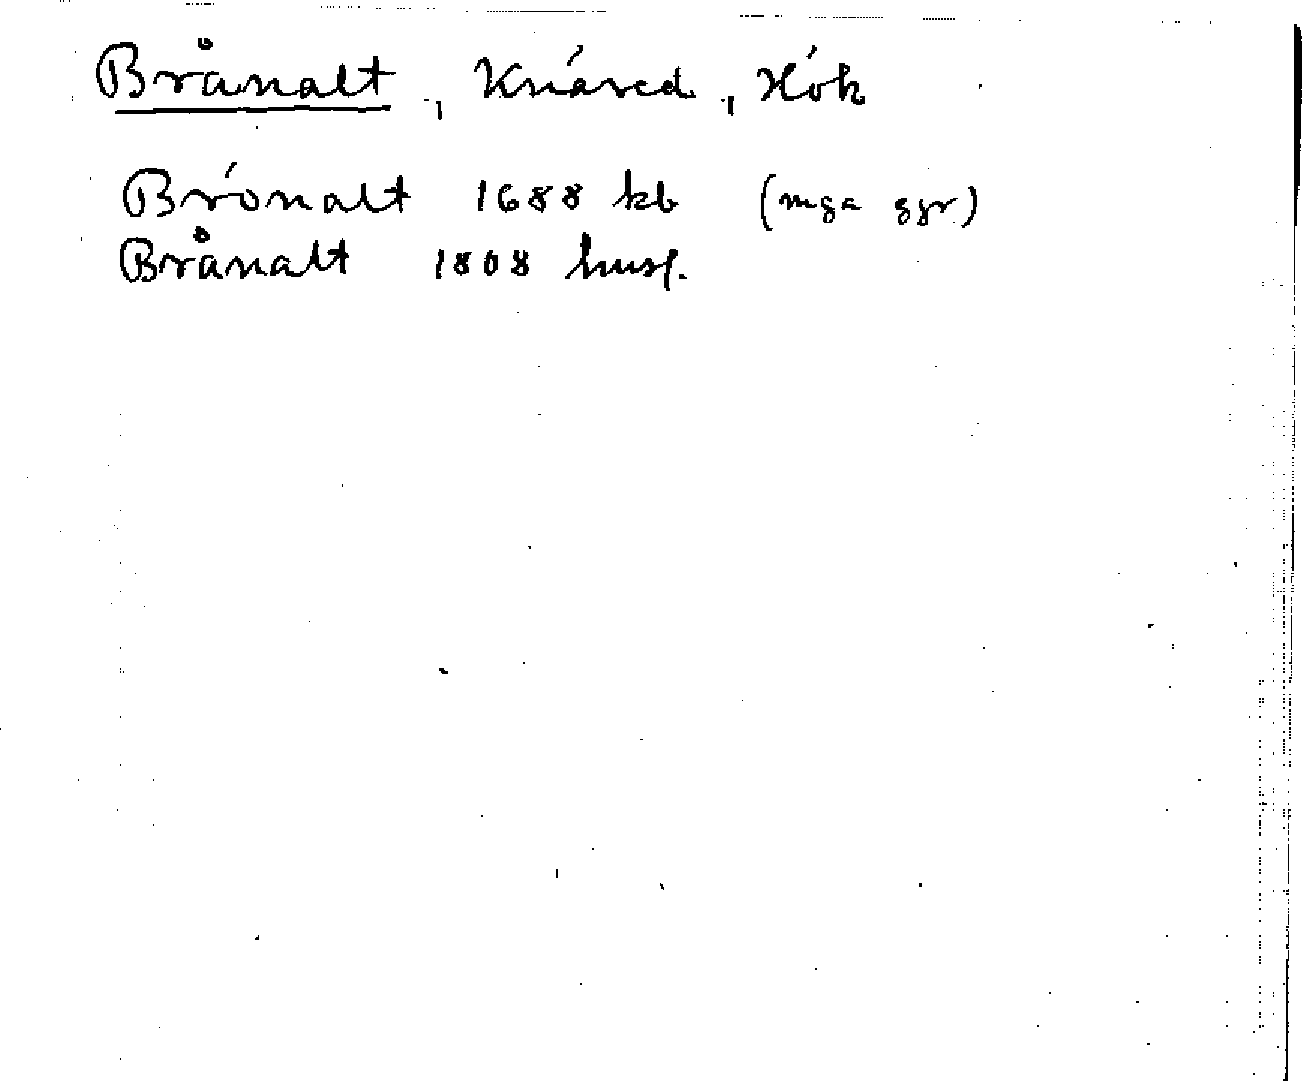 Brånalt, Knäred, Hök
Brönalt 1688 kb (mga ggr)
Brånalt 1808 husf.